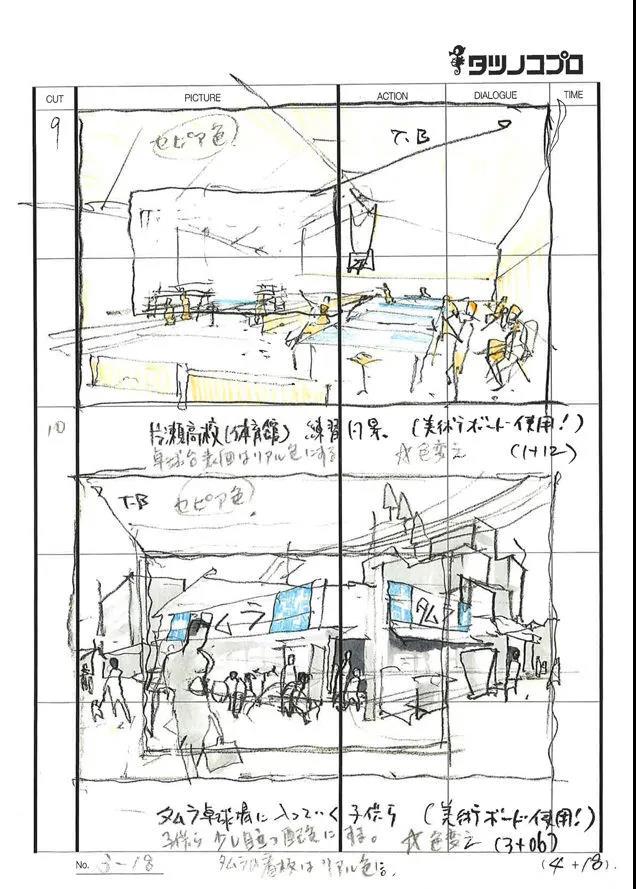 タツノコプロ
CUT PICTURE ACTION DIALOGUE TIME
9
セピア色
T.B
10
片瀬高校(体育館) 練習風景 (美術ボード使用!)
卓球台表面はリアル色にする ☆色変え (1+12)
T.B セピア色
タムラ
タム
タムラ卓球場に入っていく子供ら (美術ボード使用!)
子供ら 少し目立つ配色にする。 ☆色変え (3+06)
No. 3-18 タムラの看板はリアル色に。 (4+18)